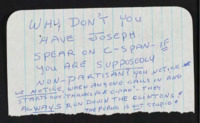 WHY DON'T YOU
HAVE JOSEPH
SPEAR ON C-SPAN - IF
YOU ARE SUPPOSEDLY
NON-PARTISAN? YOU NOTICE
WE NOTICE WHEN ANYONE CALLS IN AND
STARTS THEY
ALWAYS RUN DOWN THE CLINTONS!
THE PUBLIC IS NOT STUPID!